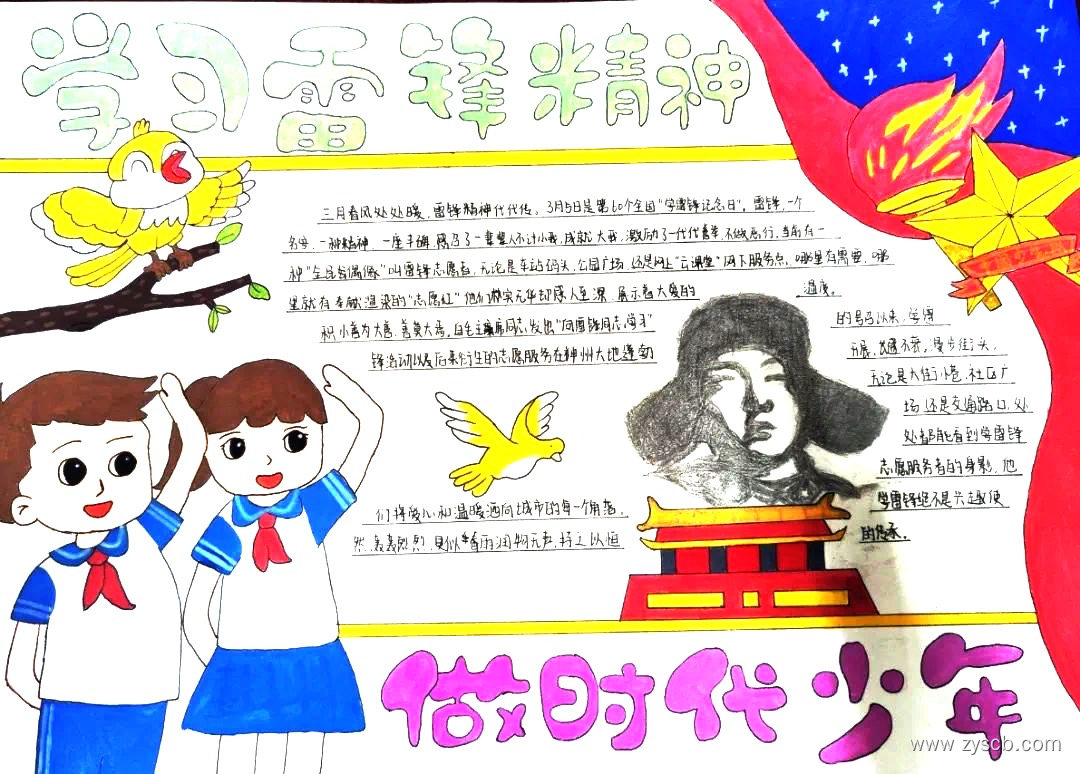 学习雷锋精神
三月春风处处暖，雷锋精神代代传。3月5日是第60个全国“学雷锋纪念日”。雷锋,一个
名字、一种精神、一座丰碑,感召了一辈辈人不计小我,成就大我,激励了一代代青年
神“全民当偶像”叫雷锋志愿者,无论是车站码头,公园广场,还是网上“云课堂”网下服务点,哪里有需要,哪
里就有奉献渲染的“志愿红”他们朴实无华却感人至深,展示着大爱的
温度。
积小善为大善,善莫大焉,自毛主席同志发出“向雷锋同志学习”
的号召以来,学雷
锋活动以及后来衍生的志愿服务在神州大地蓬勃
开展,长盛不衰。漫步街头,
无论是大街小巷,社区广
场,还是交通路口,处
处都能看到学雷锋
志愿服务者的身影,他
们将爱心和温暖洒向城市的每一个角落。
学雷锋绝不是兴趣使
然,轰轰烈烈,更似春雨润物无声,持之以恒
的传承。
做时代少年
www.zyscb.com